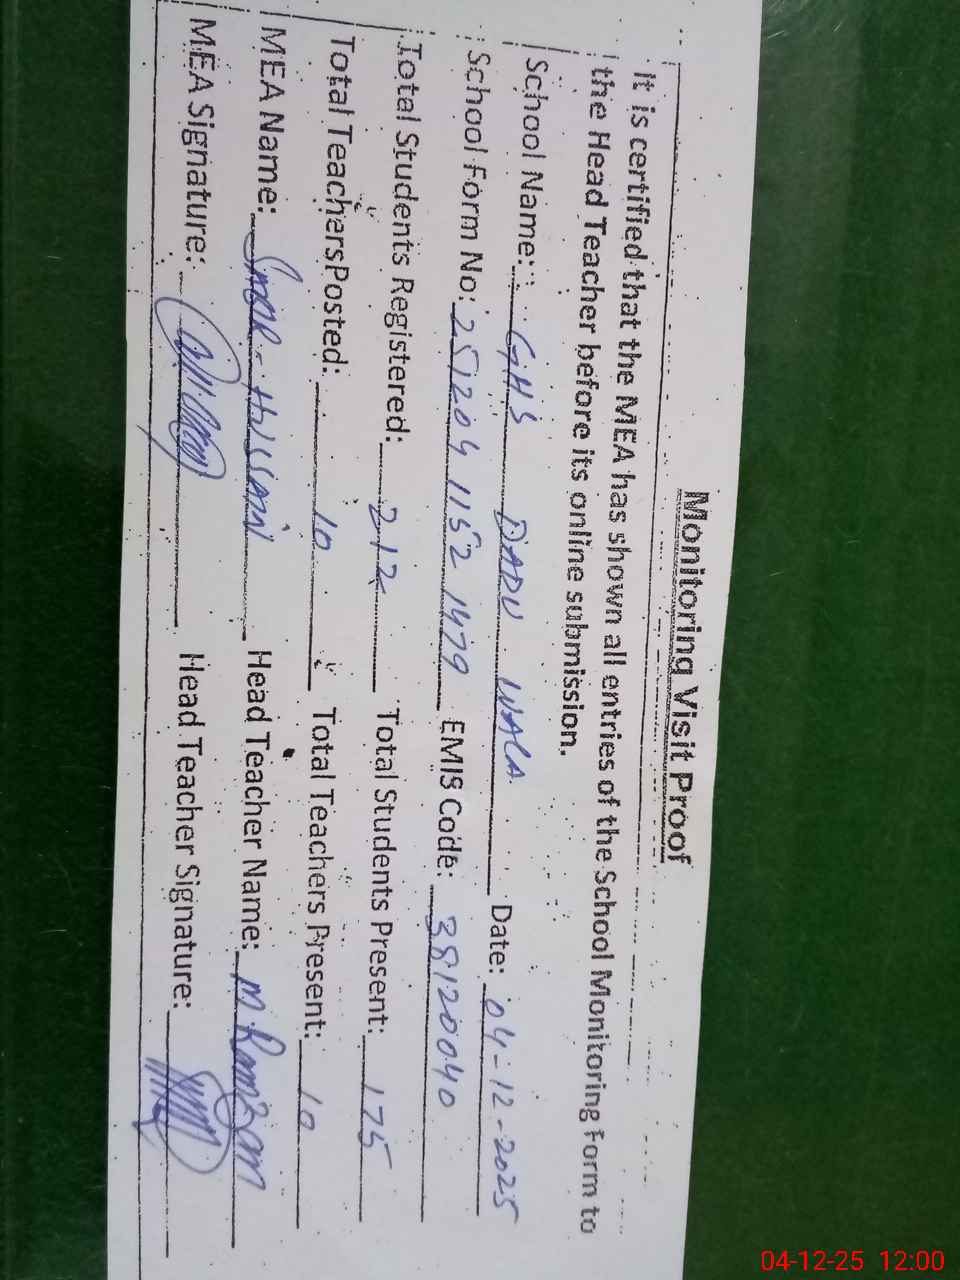 Monitoring Visit Proof
It is certified that the MEA has shown all entries of the School Monitoring Form to
the Head Teacher before its online submission.
School Name: GHS DADU WALA Date: 04-12-2025
School Form No: 251204 1152 1479 EMIS Code: 38120040
Total Students Registered: 212 Total Students Present: 175
Total Teachers Posted: 10 Total Teachers Present: 10
MEA Name: Head Teacher Name: M Ramzan
MEA Signature: Head Teacher Signature:
04-12-25 12:00